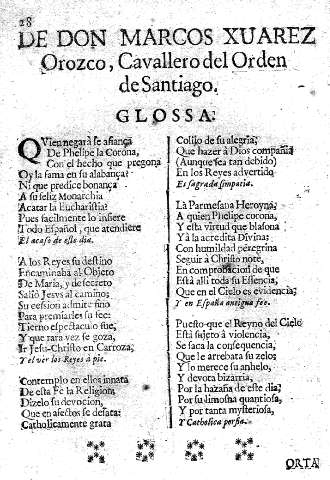 28
DE DON MARCOS XUAREZ
Orozco, Cavallero del Orden
de Santiago.
GLOSSA:
QVien negarà se afiança
De Phelipe la Corona,
Con el hecho que pregona
Oy la fama en su alabança?
Ni que predice bonança
A su feliz Monarchia
Acatar la Eucharistia?
Pues facilmente lo insiere
Todo Español, que atendiere
El acaso de este dia.
A los Reyes su destino
Encaminaba al Objeto
De Maria, y de secreto
Salió Jesus al camino;
Su cession admite fino
Para premiarles su fee:
Tierno espectaculo fue,
Y que rara vez se goza,
Ir Jesu-Christo en Carroza,
Y el ver los Reyes à pie.
Contemplo en ellos innata
De esta Fè la Religion,
Dizelo su devocion,
Que en afectos se desata:
Catholicamente grata
Colijo de su alegria;
Que hazer à Dios compañia
(Aunque sea tan debido)
En los Reyes advertido
Es sagrada simpatia.
La Parmesana Heroyna,
A quien Phelipe corona,
Y esta virtud que blasona
Yà la acredita Divina;
Con humildad peregrina
Seguir à Christo note,
En comprobacion de que
Està alli toda su Essencia,
Que en el Cielo es evidencia,
Y en España antigua fee.
Puesto que el Reyno del Cielo
Està sujeto à violencia,
Se saca la consequencia,
Que le arrebata su zelo;
Y lo merece su anhelo,
Y devota bizarria,
Por la hazaña de este dia,
Por su limosna quantiosa,
Y por tanta mysteriosa,
Y Catholica porfia.
ORTA